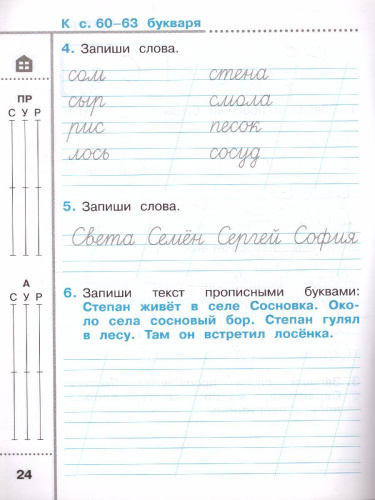 К с. 60–63 букваря
4. Запиши слова.
сом стена
ПР
сыр смола
С У Р
рис песок
лось сосуд
5. Запиши слова.
Света Семён Сергей София
А
6. Запиши текст прописными буквами:
С У Р
Степан живёт в селе Сосновка. Око-
ло села сосновый бор. Степан гулял
в лесу. Там он встретил лосёнка.
24